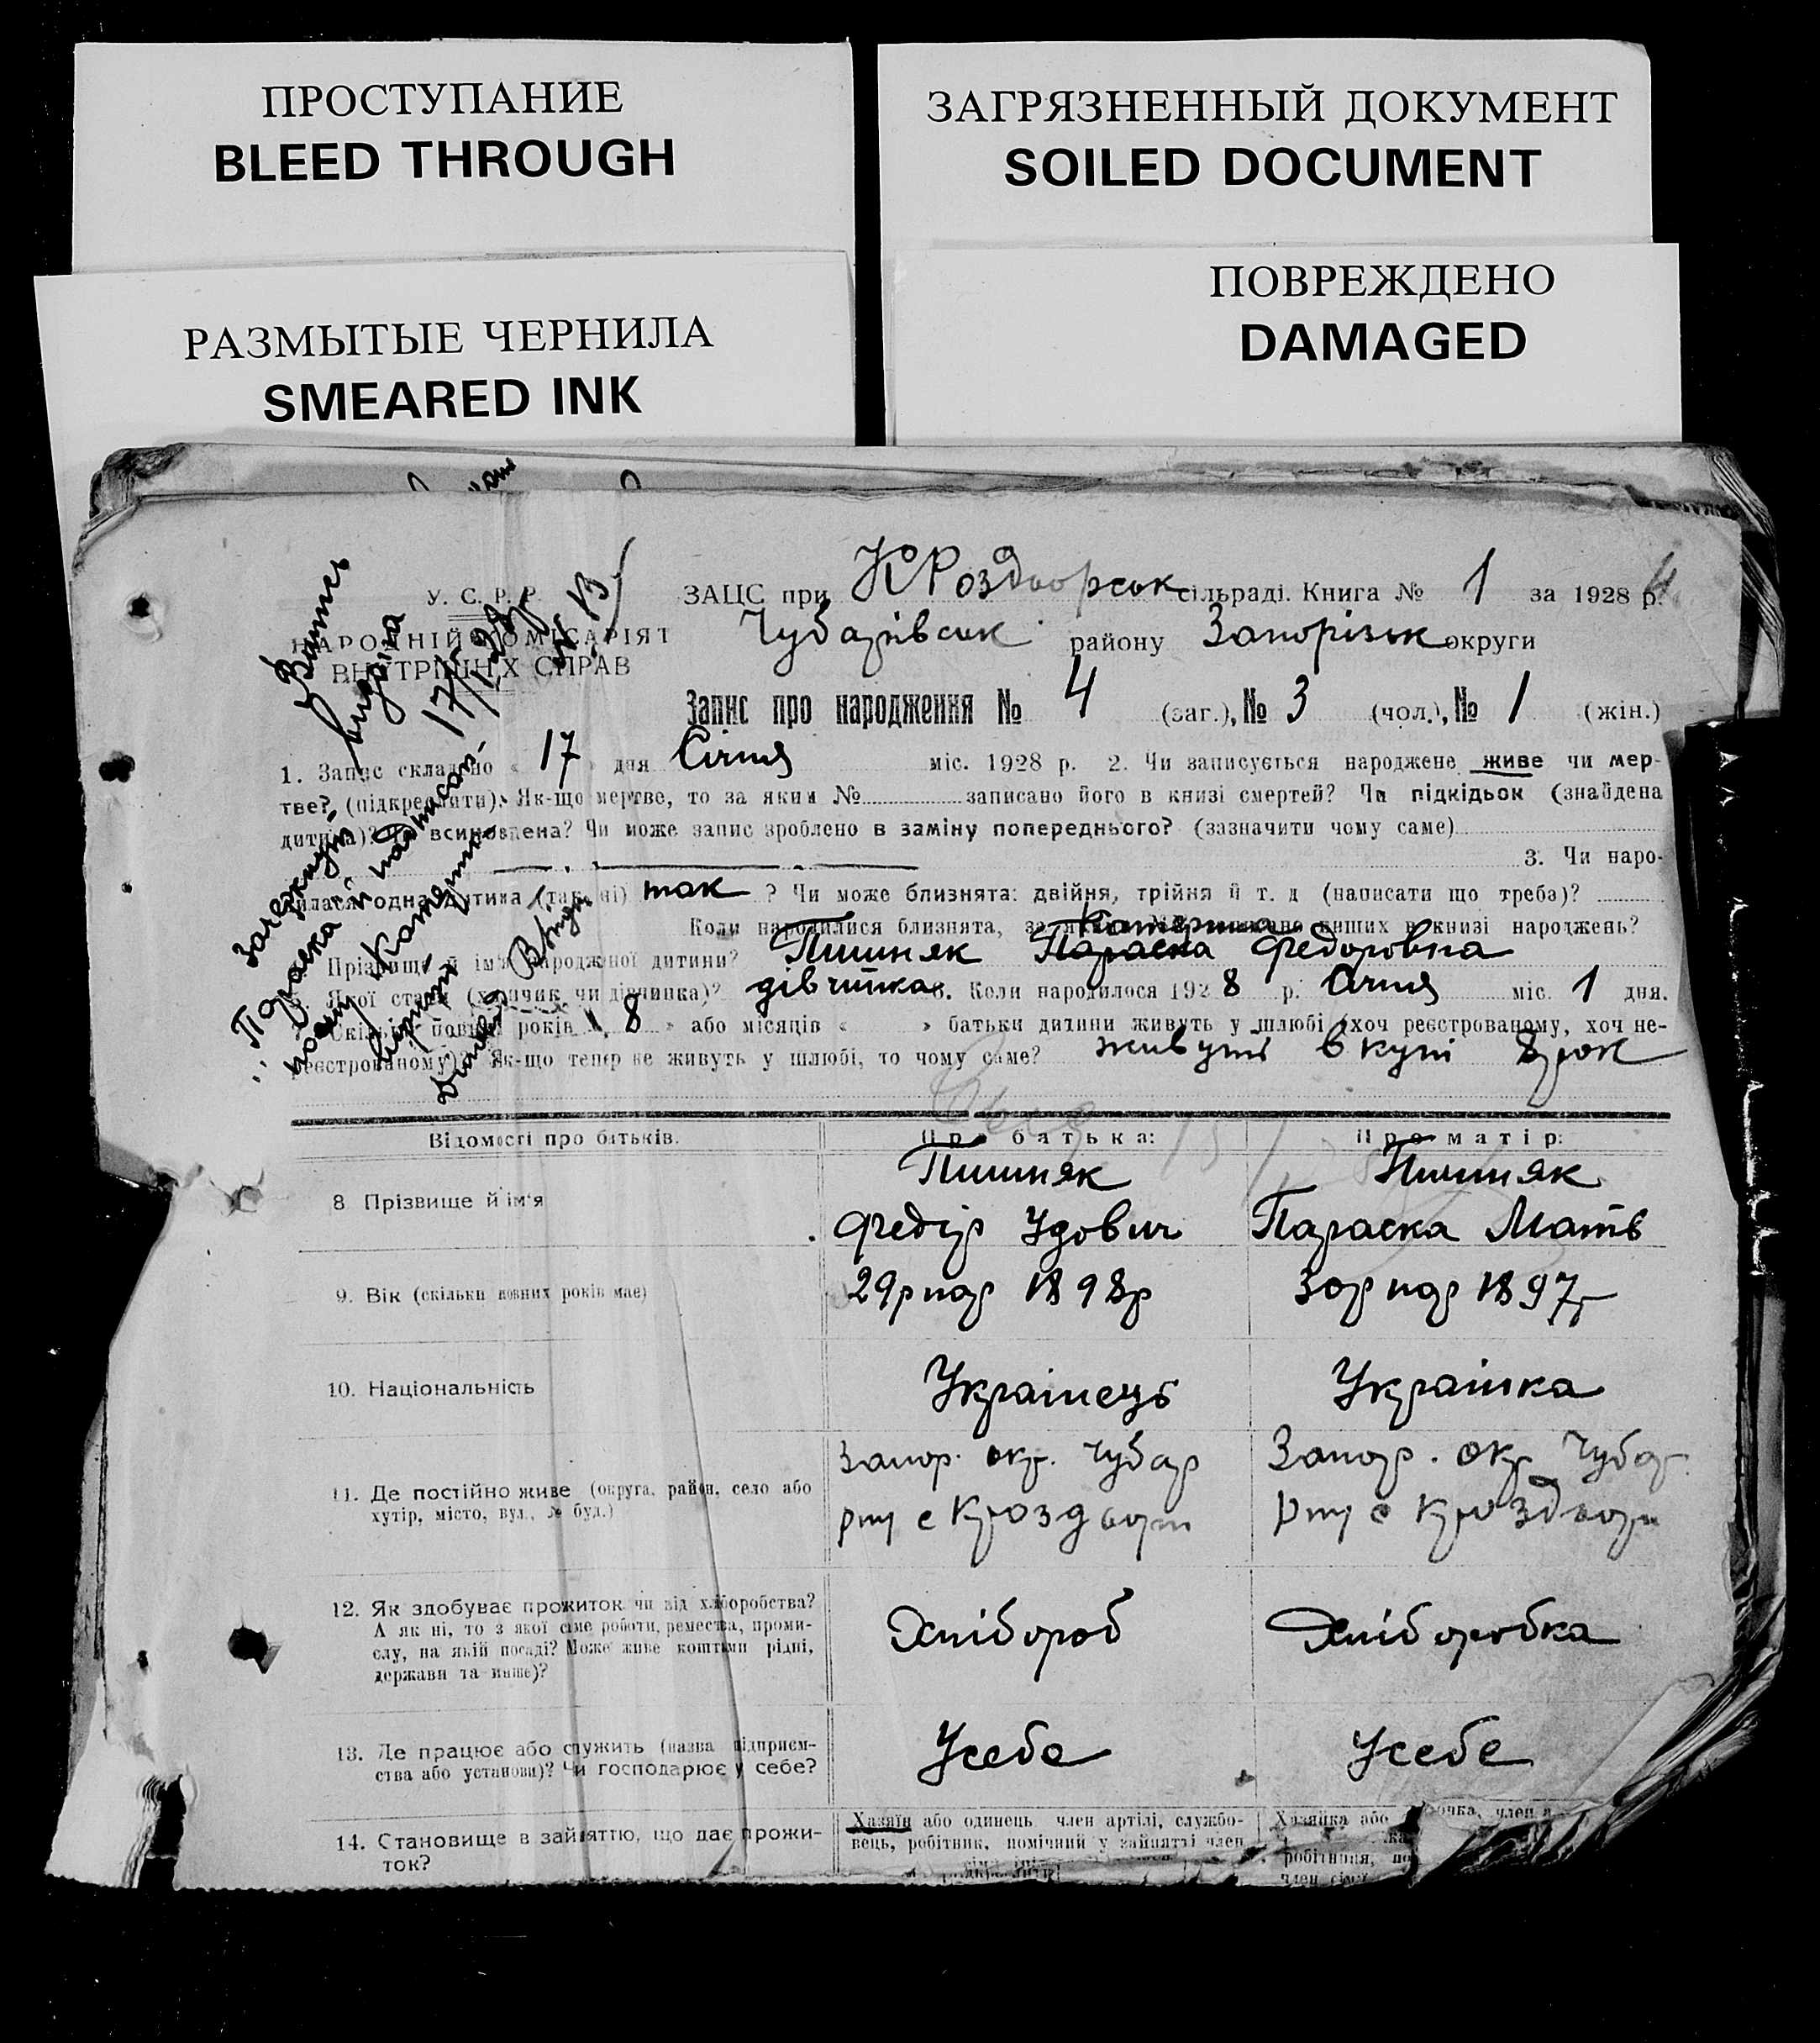 ПРОСТУПАНИЕ
BLEED THROUGH
ЗАГРЯЗНЕННЫЙ ДОКУМЕНТ
SOILED DOCUMENT
РАЗМЫТЫЕ ЧЕРНИЛА
SMEARED INK
ПОВРЕЖДЕНО
DAMAGED
У. С. Р. Р.
НАРОДНІЙ КОМІСАРІЯТ
ВНУТРІШНІХ СПРАВ
ЗАЦС при К Роздорськ сільраді. Книга № 1 за 1928 р.
Чубарівськ району Запорізьк округи
Запис про народження № 4 (заг.), № 3 (чол.), № 1 (жін.)
1. Запис складено « 17 » дня Січня міс. 1928 р. 2. Чи записується народжене живе чи мер-
тве? (підкреслити). Як-що мертве, то за яким № записано його в книзі смертей? Чи підкідьок (знайдена
дитина)? Чи всиновлена? Чи може запис зроблено в заміну попереднього? (зазначити чому саме)
3. Чи наро-
дилася одна дитина (так, ні) так ? Чи може близнята: двійня, трійня й т. д. (написати що треба)?
Коли народилися близнята, за інших в книзі народжень?
Катерина
Прізвище й ім'я народженої дитини? Пишняк Параска Федоровна
Якої статі (хлопчик чи дівчинка)? дівчинка 6. Коли народилося 1928 р. Січня міс. 1 дня.
Скільки повних років « 8 » або місяців « » батьки дитини живуть у шлюбі (хоч реєстрованому, хоч не-
реєстрованому)? Як-що тепер не живуть у шлюбі, то чому саме? живуть вкупі 8рок
Запис
17/I-28р
закреслений
Параска й надписан.
Катерина
вірить
Відомості про батьків.
Про батька:
Про матір:
8. Прізвище й ім'я
Пишняк
Федір Удович
Пишняк
Параска Матв
9. Вік (скільки повних років має)
29р нар 1898р
30р нар 1897р
10. Національність
Українець
Українка
11. Де постійно живе (округа, район, село або
хутір, місто, вул., № буд.)
Запор. окр. Чубар
рну с Кроздори
Запор. окр Чубар.
рну с Кроздори
12. Як здобуває прожиток чи від хліборобства?
А як ні, то з якої саме роботи, ремества, проми-
слу, на якій посаді? Може живе коштами рідні,
держави та инше)?
Хлібороб
Хліборобка
13. Де працює або служить (назва підприєм-
ства або установи)? Чи господарює у себе?
Усебе
Усебе
14. Становище в зайняттю, що дає прожи-
ток?
Хазяїн або одинець, член артілі, службо-
вець, робітник, помічний у зайнятті член
Хазяйка або
робітниця, по
член сім'ї